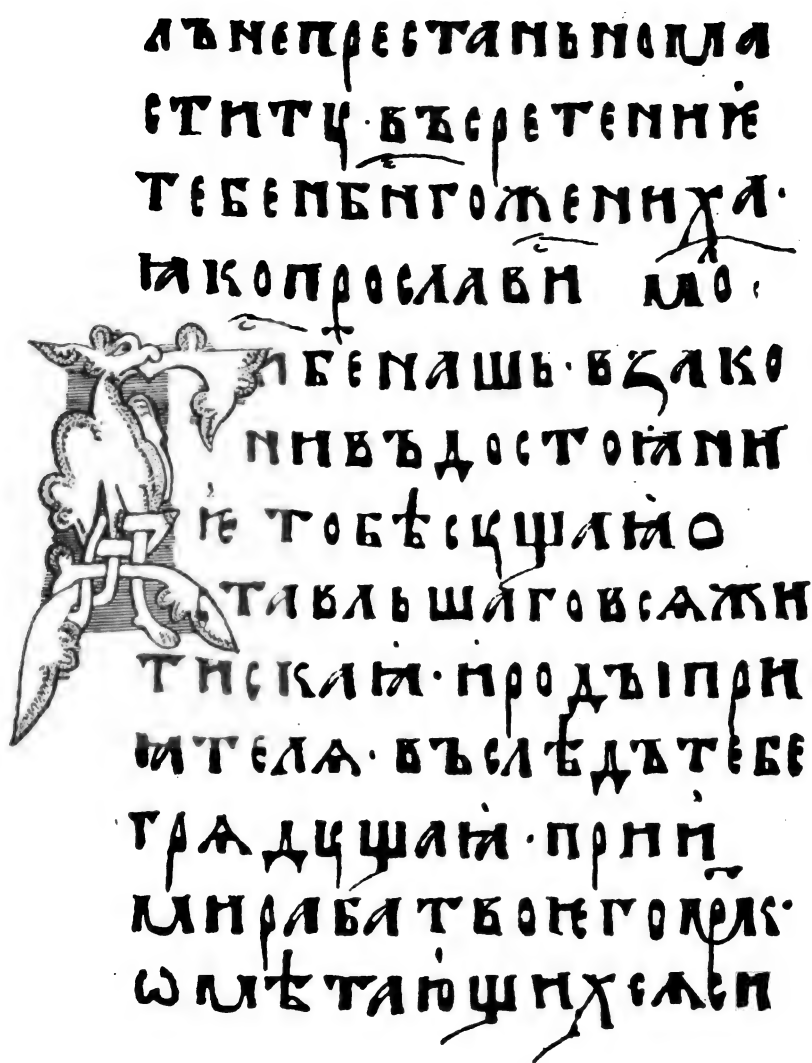 лънепрестаньномла
ститц·въсретениѥ
тебенб҃нгоженнха·
ꙗкопрославн҃ мо·
нб҃енашь·вꙁако
ннвъдостоꙗнн
ѥ тобѣскцщаꙗо
ставльшаговсѧжн
тискаꙗ·иродъіпрн
ꙗтелѧ·въслѣдътебе
грѧдцщаꙗ·прнн
мнрабатвоѥгомрк·
ѡмѣтающнхсѧсн